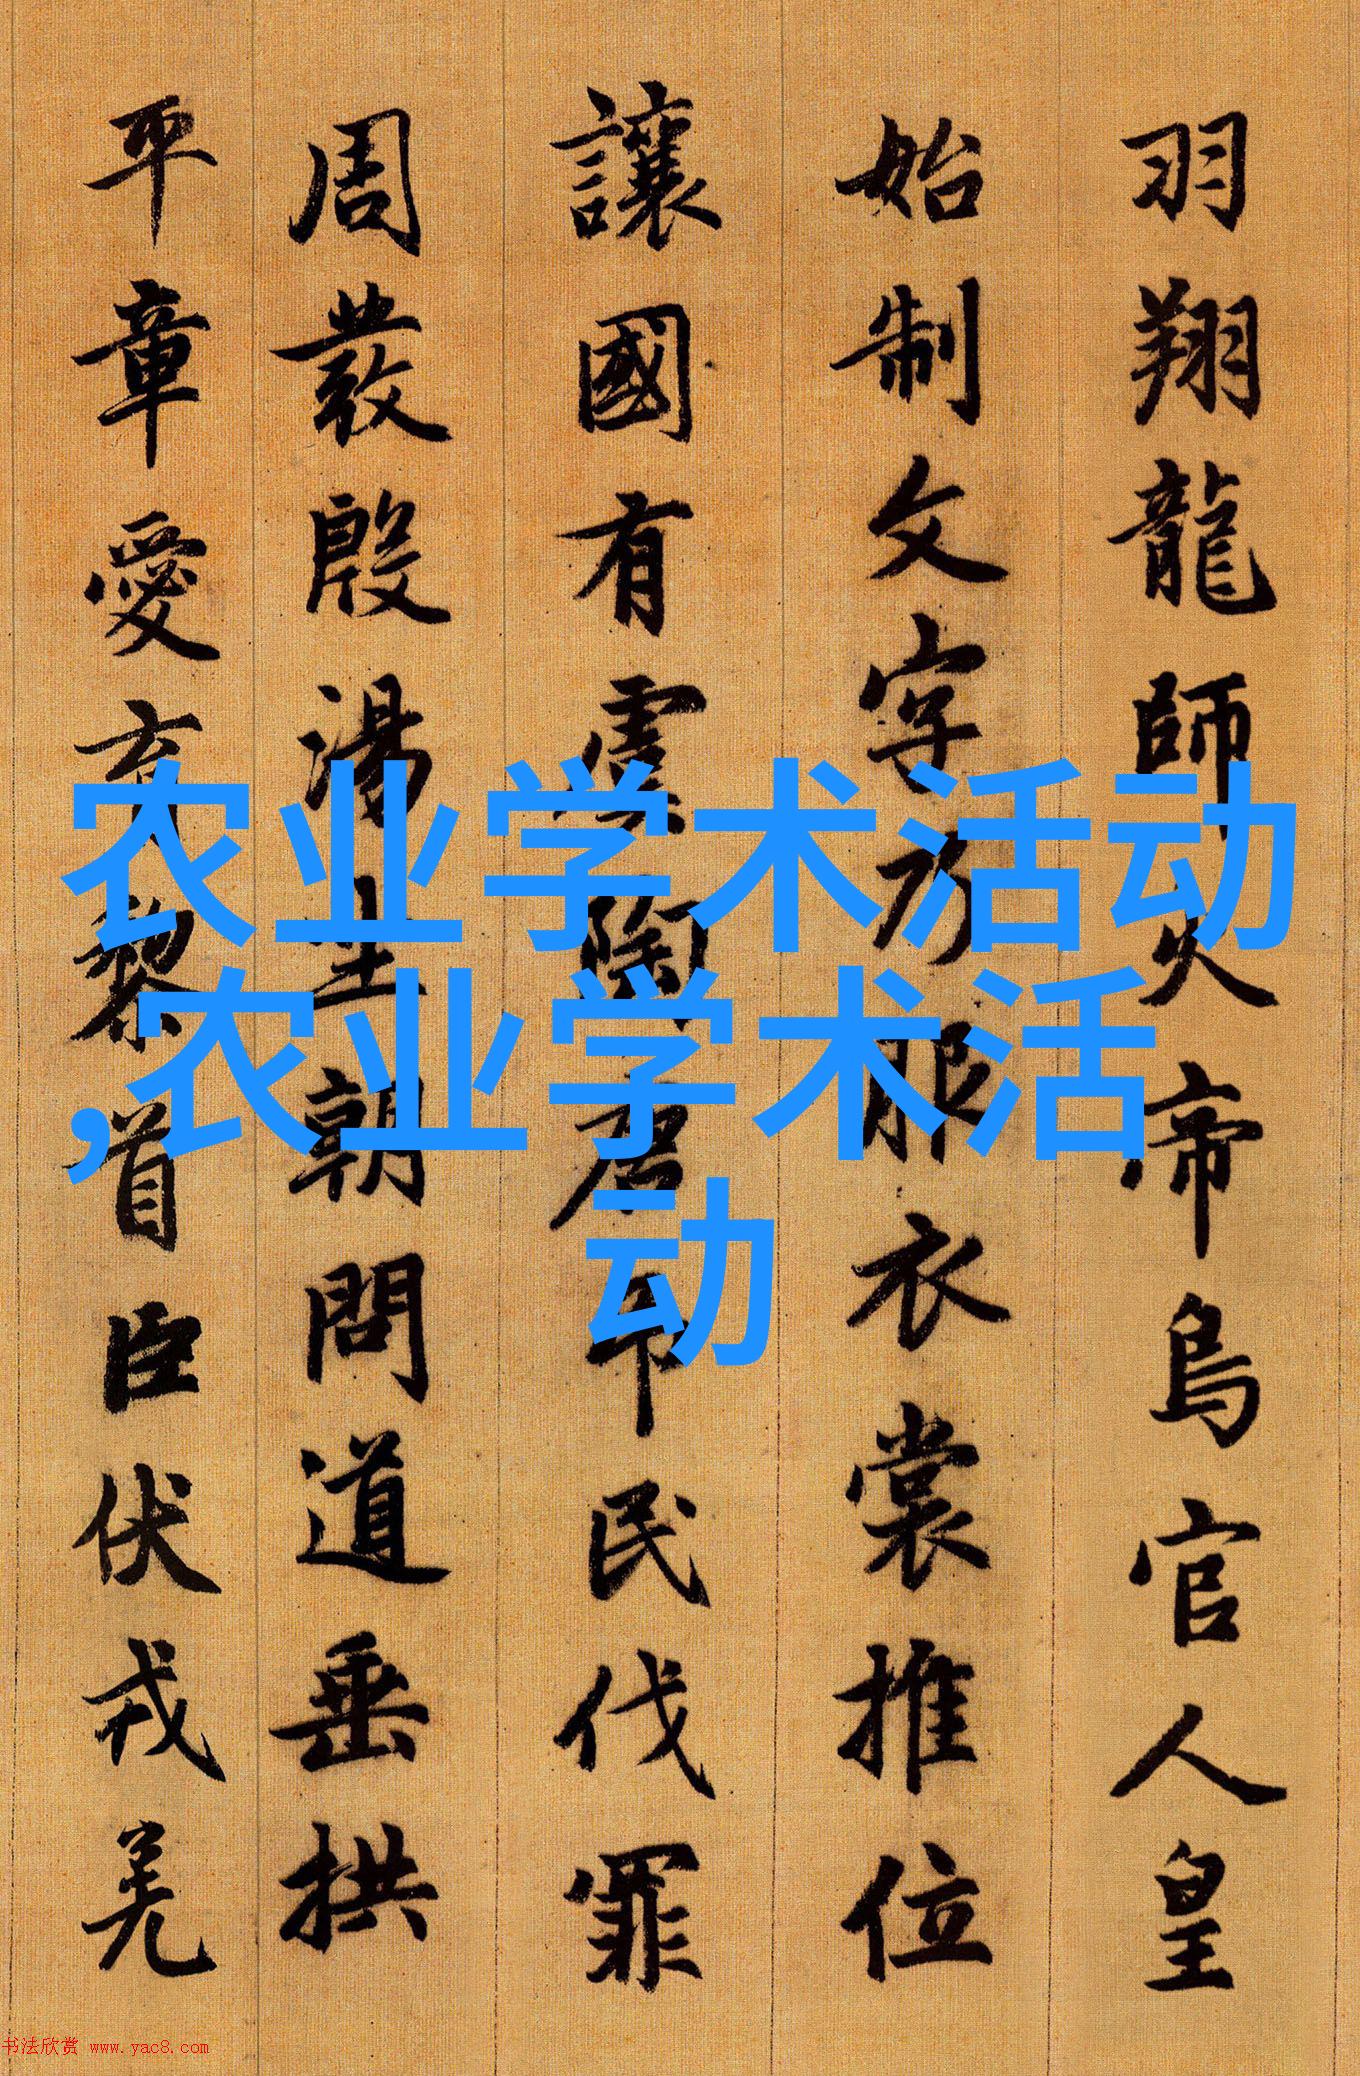 羽翔龍師火帝鳥官人皇
始制文字乃服衣裳推位
讓國有虞陶唐弔民伐罪
周發殷湯坐朝問道垂拱
平章愛育黎首臣伏戎羌
农业学术活动
,农业学术活
动
书法欣赏 www.yac8.com